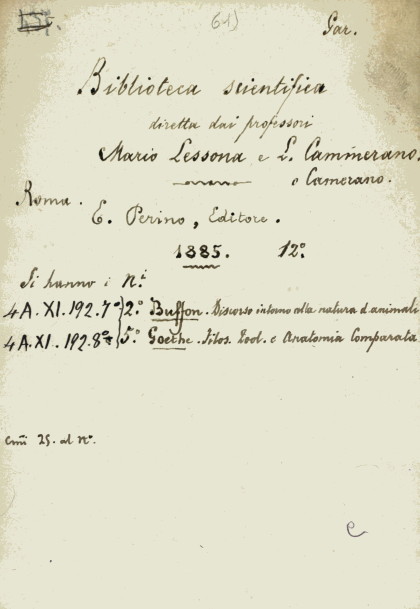 61) Gar.
Biblioteca scientifica
diretta dai professori
Mario Lessona e L. Cammerano.
o Camerano.
Roma.
E. Perino, Editore.
1885. 12º
Si hanno i N.i
4A.XI.192.7º 2º Buffon. Discorso intorno alla natura d. animali
4A.XI.192.8º 5º Goethe. Filos. Zool. e Anatomia Comparata
Cmi 25. al Nº.
e